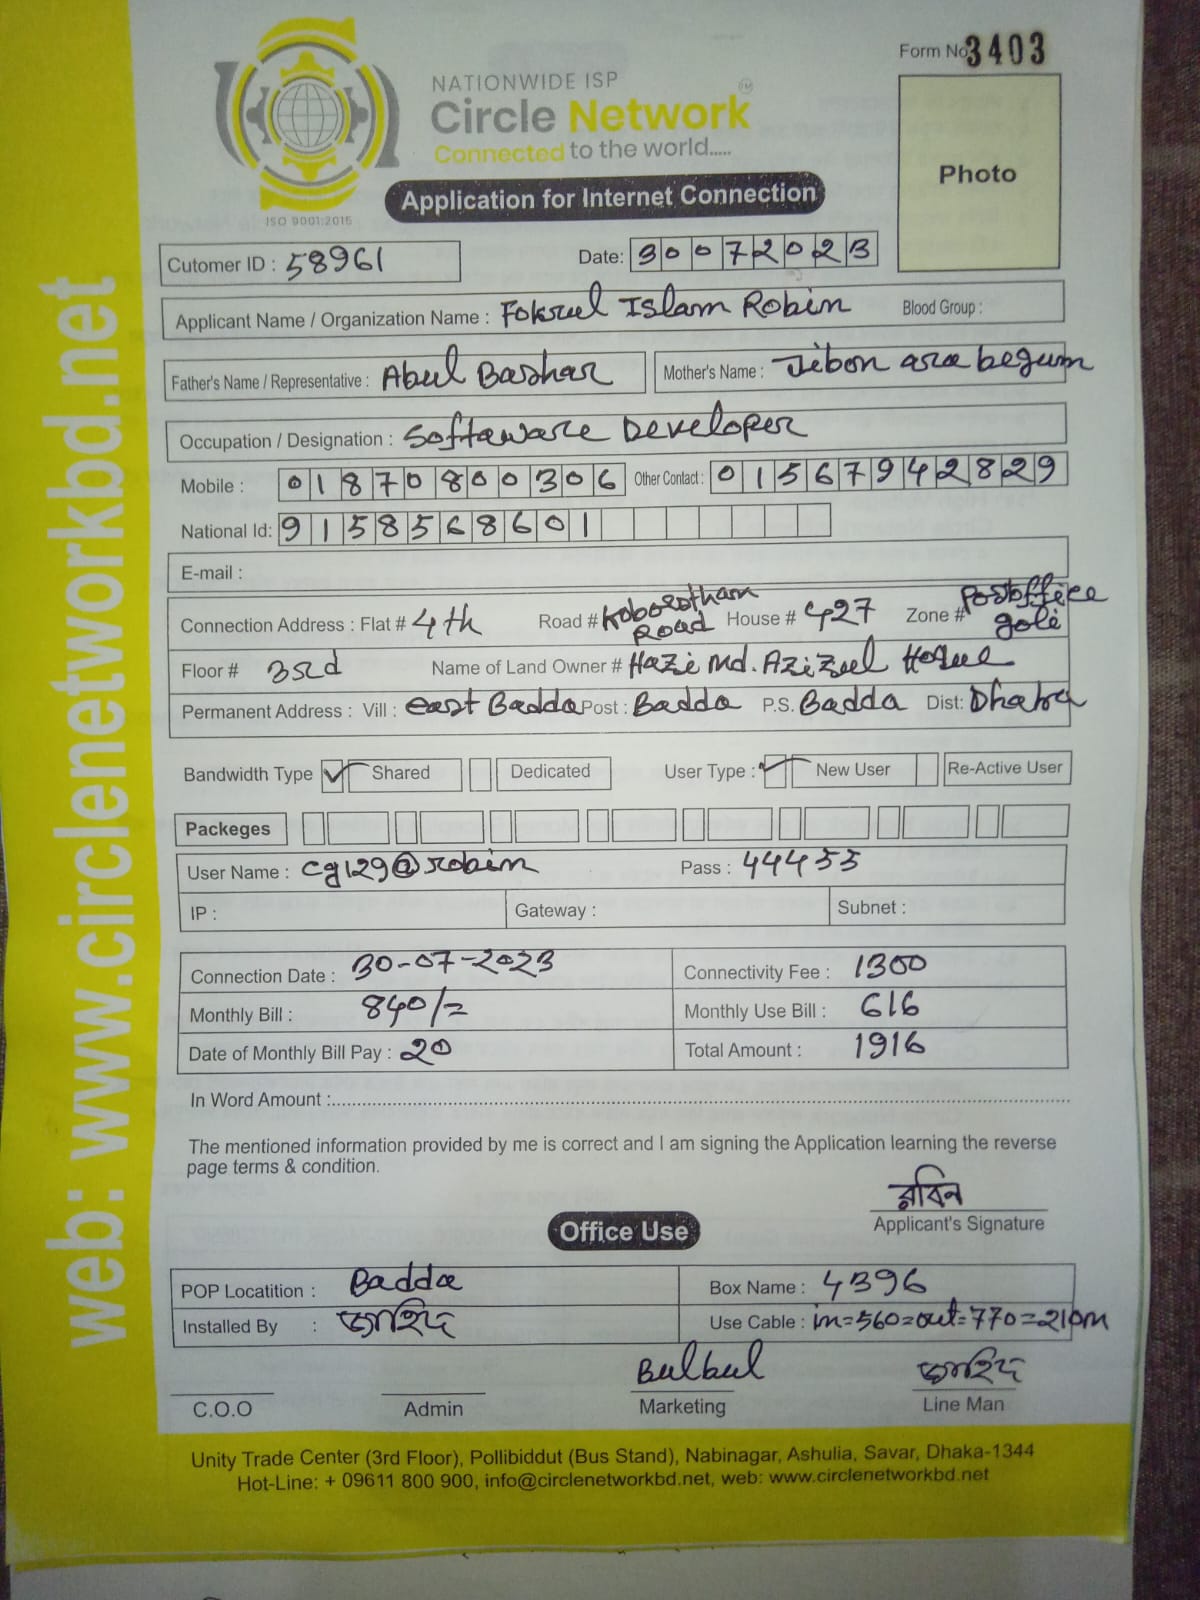 Form No 3403
NATIONWIDE ISP
Circle Network
TM
Connected to the world.....
ISO 9001:2015
Application for Internet Connection
Photo
web: www.circlenetworkbd.net
Cutomer ID : 58961
Date: 30072023
Applicant Name / Organization Name : Fokrul Islam Robin Blood Group :
Father's Name / Representative : Abul Bashar Mother's Name : Jibon ara begum
Occupation / Designation : Softaware Developer
Mobile : 01870800306 Other Contact : 01567942829
National Id: 9158568601
E-mail :
Connection Address : Flat # 4th Road # Koborstham Road House # 427 Zone # Postoffice goli
Floor # 3rd Name of Land Owner # Hazi Md. Azizul Hoque
Permanent Address : Vill : east Badda Post : Badda P.S. Badda Dist: Dhaka
Bandwidth Type ✓ Shared Dedicated User Type : ✓ New User Re-Active User
Packeges
User Name : cg129@robin Pass : 444553
IP : Gateway : Subnet :
Connection Date : 30-07-2023 Connectivity Fee : 1300
Monthly Bill : 840/= Monthly Use Bill : 616
Date of Monthly Bill Pay : 20 Total Amount : 1916
In Word Amount :
The mentioned information provided by me is correct and I am signing the Application learning the reverse
page terms & condition.
রবিন
Applicant's Signature
Office Use
POP Locatition : Badda Box Name : 4396
Installed By : জাহিদ Use Cable : in=560=out=770=210m
Bulbul জাহিদ
C.O.O Admin Marketing Line Man
Unity Trade Center (3rd Floor), Pollibiddut (Bus Stand), Nabinagar, Ashulia, Savar, Dhaka-1344
Hot-Line: + 09611 800 900, info@circlenetworkbd.net, web: www.circlenetworkbd.net